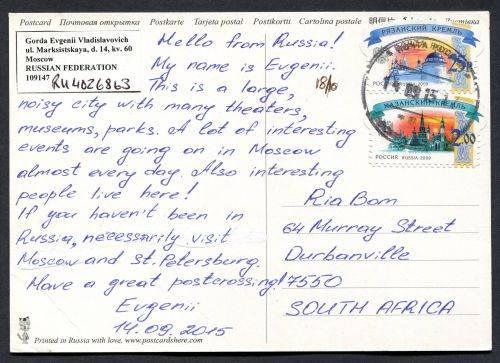 Postcard Почтовая открытка Postkarte Tarjeta postal Postkort Cartolina postale 明信片
Gorda Evgenii Vladislavovich
ul. Marksistskaya, d. 14, kv. 60
Moscow
RUSSIAN FEDERATION
109147
RU4026863
Hello from Russia!
My name is Evgenii.
This is a large,
noisy city with many theaters,
museums, parks. A lot of interesting
events are going on in Moscow
almost every day. Also interesting
people live here!
If you haven't been in
Russia, necessarily visit
Moscow and St. Petersburg.
Have a great postcrossing!
Evgenii
14.09.2015
18/10
РЯЗАНСКИЙ КРЕМЛЬ
ПОЧТА
14 09 15
КАЗАНСКИЙ КРЕМЛЬ
2.00
РОССИЯ RUSSIA·2009
Ria Bom
64 Murray Street
Durbanville
7550
SOUTH AFRICA
Printed in Russia with love, www.postcardshere.com